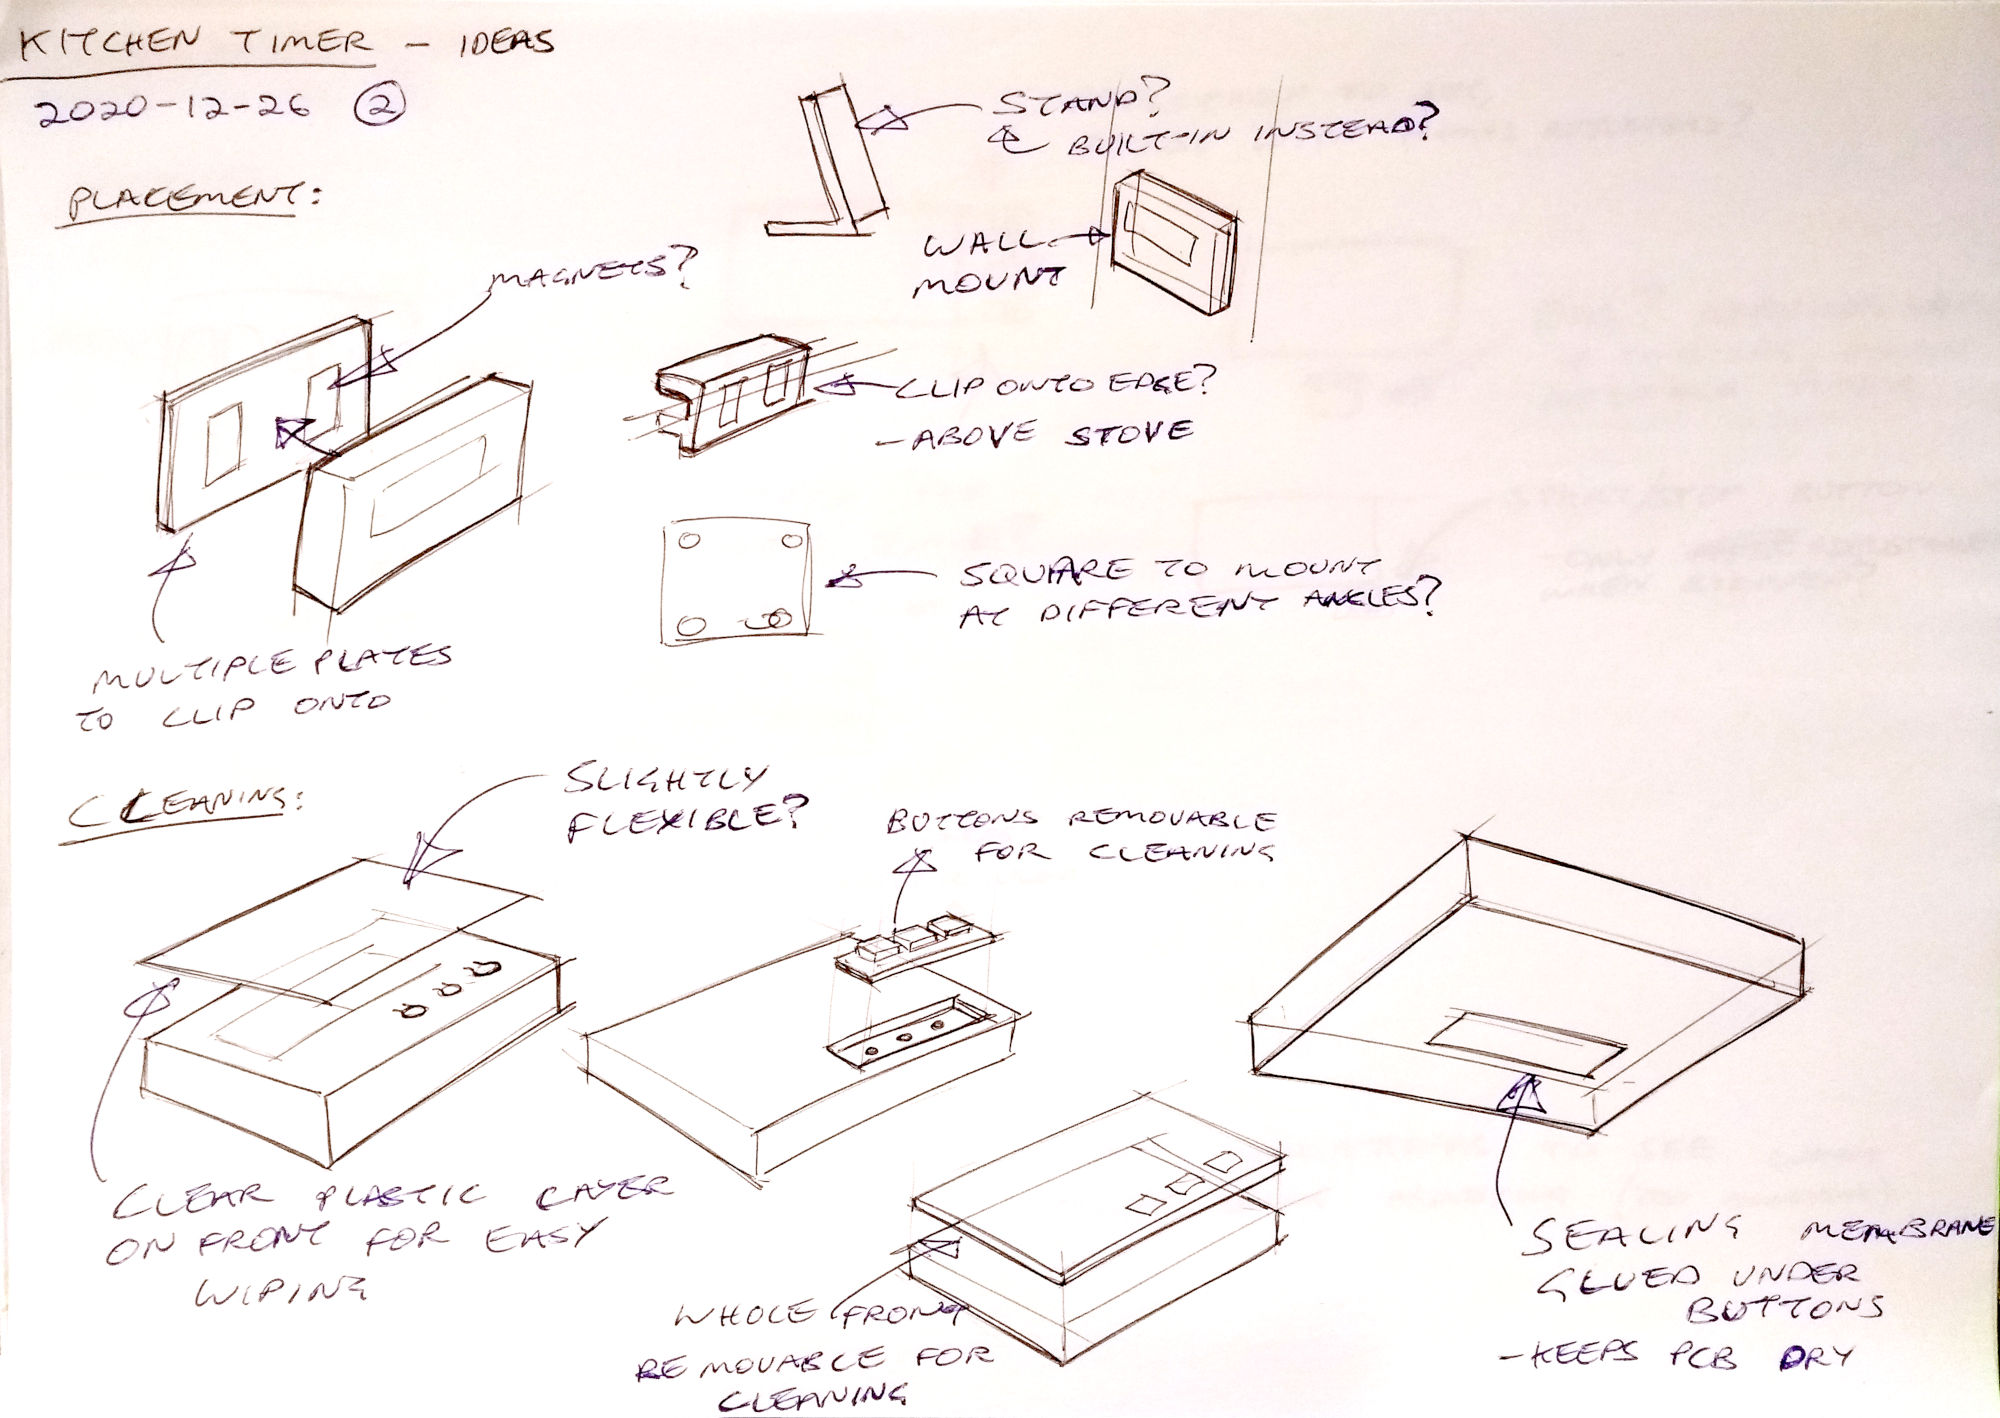 KITCHEN TIMER - IDEAS
2020-12-26 ②
PLACEMENT:
STAND?
BUILT-IN INSTEAD?
WALL
MOUNT
MAGNETS?
CLIP ONTO EDGE?
- ABOVE STOVE
SQUARE TO MOUNT
AT DIFFERENT ANGLES?
MULTIPLE PLATES
TO CLIP ONTO
CLEANING:
SLIGHTLY
FLEXIBLE?
BUTTONS REMOVABLE
FOR CLEANING
CLEAR PLASTIC LAYER
ON FRONT FOR EASY
WIPING
WHOLE FRONT
REMOVABLE FOR
CLEANING
SEALING MEMBRANE
GLUED UNDER
BUTTONS
- KEEPS PCB DRY